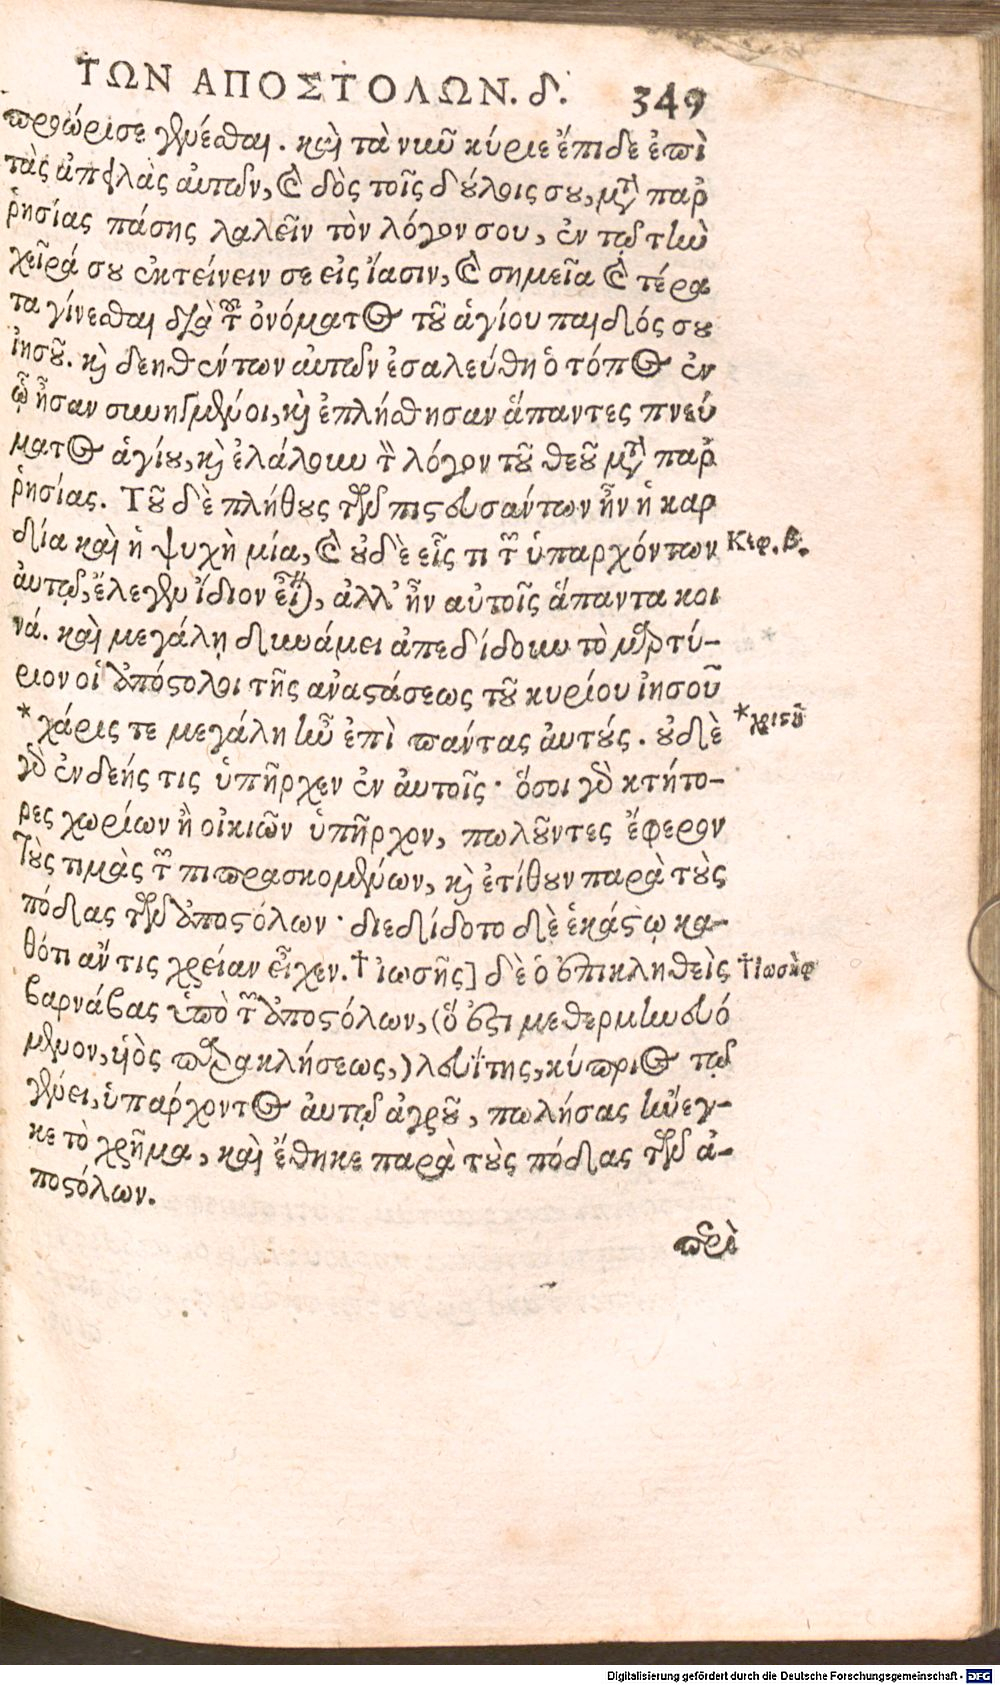 ΤΩΝ ΑΠΟΣΤΟΛΩΝ. δ. 349
προώρισε γενέσθαι. καὶ τὰ νιῦ κύριε ἔπιδε ἐπὶ
τὰς ἀπειλὰς ἀυτῶν, καὶ δὸς τοῖς δούλοις σου, μετὰ παρ
ῥησίας πάσης λαλεῖν τὸν λόγον σου, ἐν τῷ τὴν
χεῖρά σου ἐκτείνειν σε εἰς ἴασιν, καὶ σημεῖα καὶ τέρα
τα γίνεσθαι διὰ τοῦ ὀνόματος τοῦ ἁγίου παιδός σου
ἰησοῦ. καὶ δεηθέντων ἀυτῶν ἐσαλεύθη ὁ τόπος ἐν
ᾧ ἦσαν συνηγμένοι, καὶ ἐπλήσθησαν ἅπαντες πνεύ
ματος ἁγίου, καὶ ἐλάλουν τὸν λόγον τοῦ θεοῦ μετὰ παρ
ῥησίας. Τοῦ δὲ πλήθους τῶν πιστευσάντων ἦν ἡ καρ
δία καὶ ἡ ψυχὴ μία, καὶ οὐδὲ εἷς τι τῶν ὑπαρχόντων
Κεφ. β.
ἀυτῷ, ἔλεγεν ἴδιον εἶναι, ἀλλ' ἦν αὐτοῖς ἅπαντα κοι
νά. καὶ μεγάλῃ δυνάμει ἀπεδίδουν τὸ μαρτύ-
ριον οἱ ἀπόστολοι τῆς αναστάσεως τοῦ κυρίου ἰησοῦ
* χάρις τε μεγάλη ἦν ἐπὶ πάντας ἀυτούς. οὐδὲ
* χριστοῦ
γὰρ ἐνδεής τις ὑπῆρχεν ἐν ἀυτοῖς· ὅσοι γὰρ κτήτο-
ρες χωρίων ἢ οἰκιῶν ὑπῆρχον, πωλοῦντες ἔφερον
τὰς τιμὰς τῶν πιπρασκομένων, καὶ ἐτίθουν παρὰ τοὺς
πόδας τῶν ἀποστόλων· διεδίδοτο δὲ ἑκάστῳ κα-
θότι αν τις χρείαν εἶχεν. † ἰωσῆς] δὲ ὁ ἐπικληθεὶς
† Ἰωσὴφ
βαρνάβας ὑπὸ τῶν ἀποστόλων, (ὅ ἐστι μεθερμηνευό
μενον, υἱὸς παρακλήσεως,) λευΐτης, κύπριος τῷ
γένει, ὑπάρχοντος ἀυτῷ ἀγροῦ, πωλήσας ἤνεγ-
κε τὸ χρῆμα, καὶ ἔθηκε παρὰ τοὺς πόδας τῶν ἀ-
ποστόλων.
περὶ
Digitalisierung gefördert durch die Deutsche Forschungsgemeinschaft - DFG